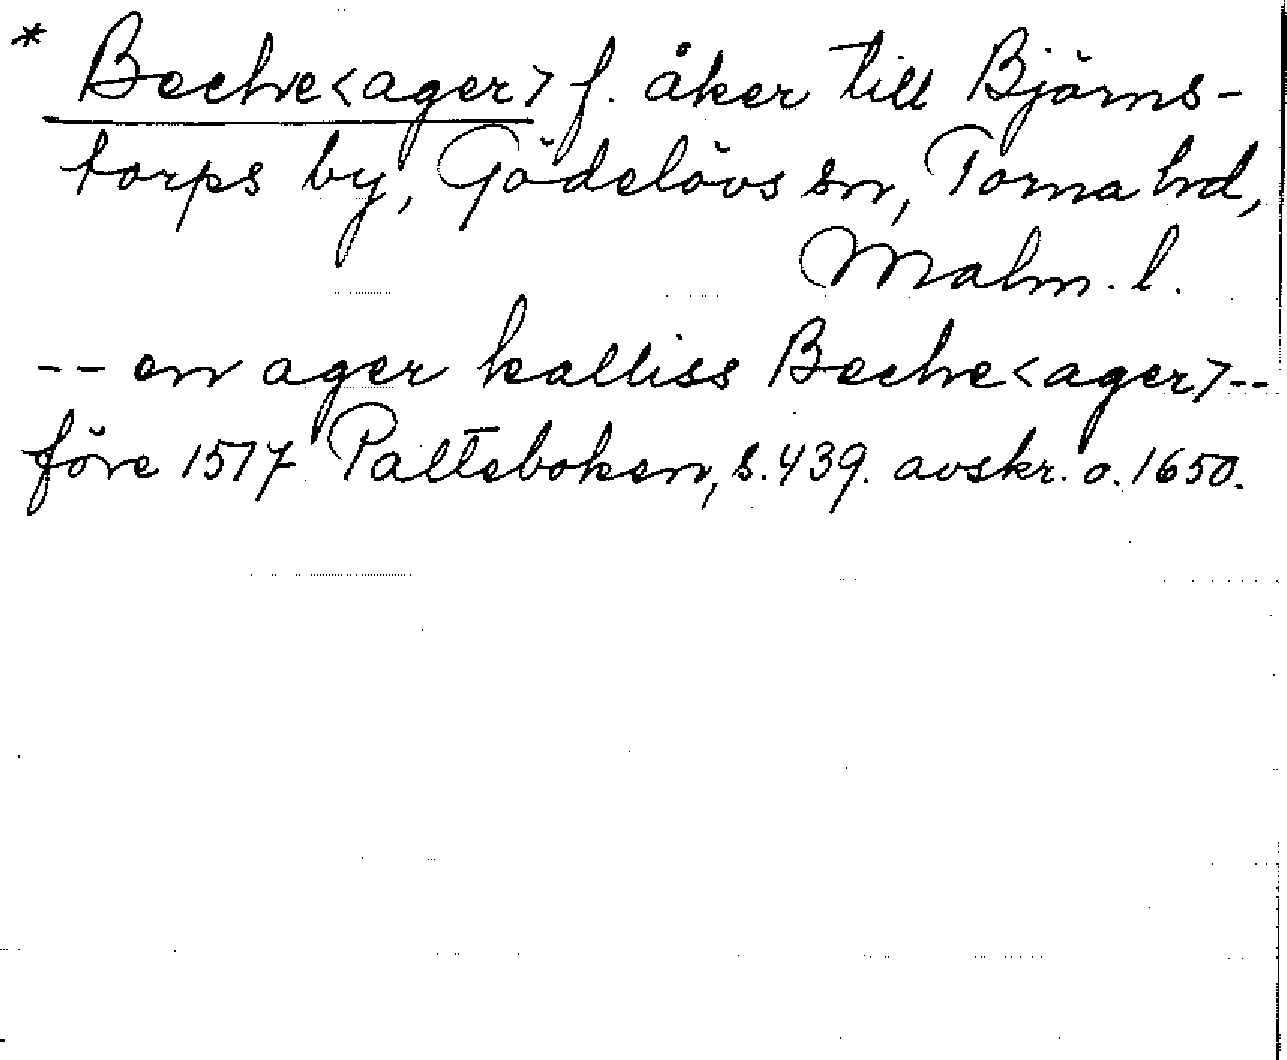 * Beche<ager> f. åker till Björns-
torps by, Gödelövs sn, Torna hd,
Malm. l.
-- en ager kalliss Beche<ager>--
före 1517 Palteboken, s. 439. avskr. o. 1650.